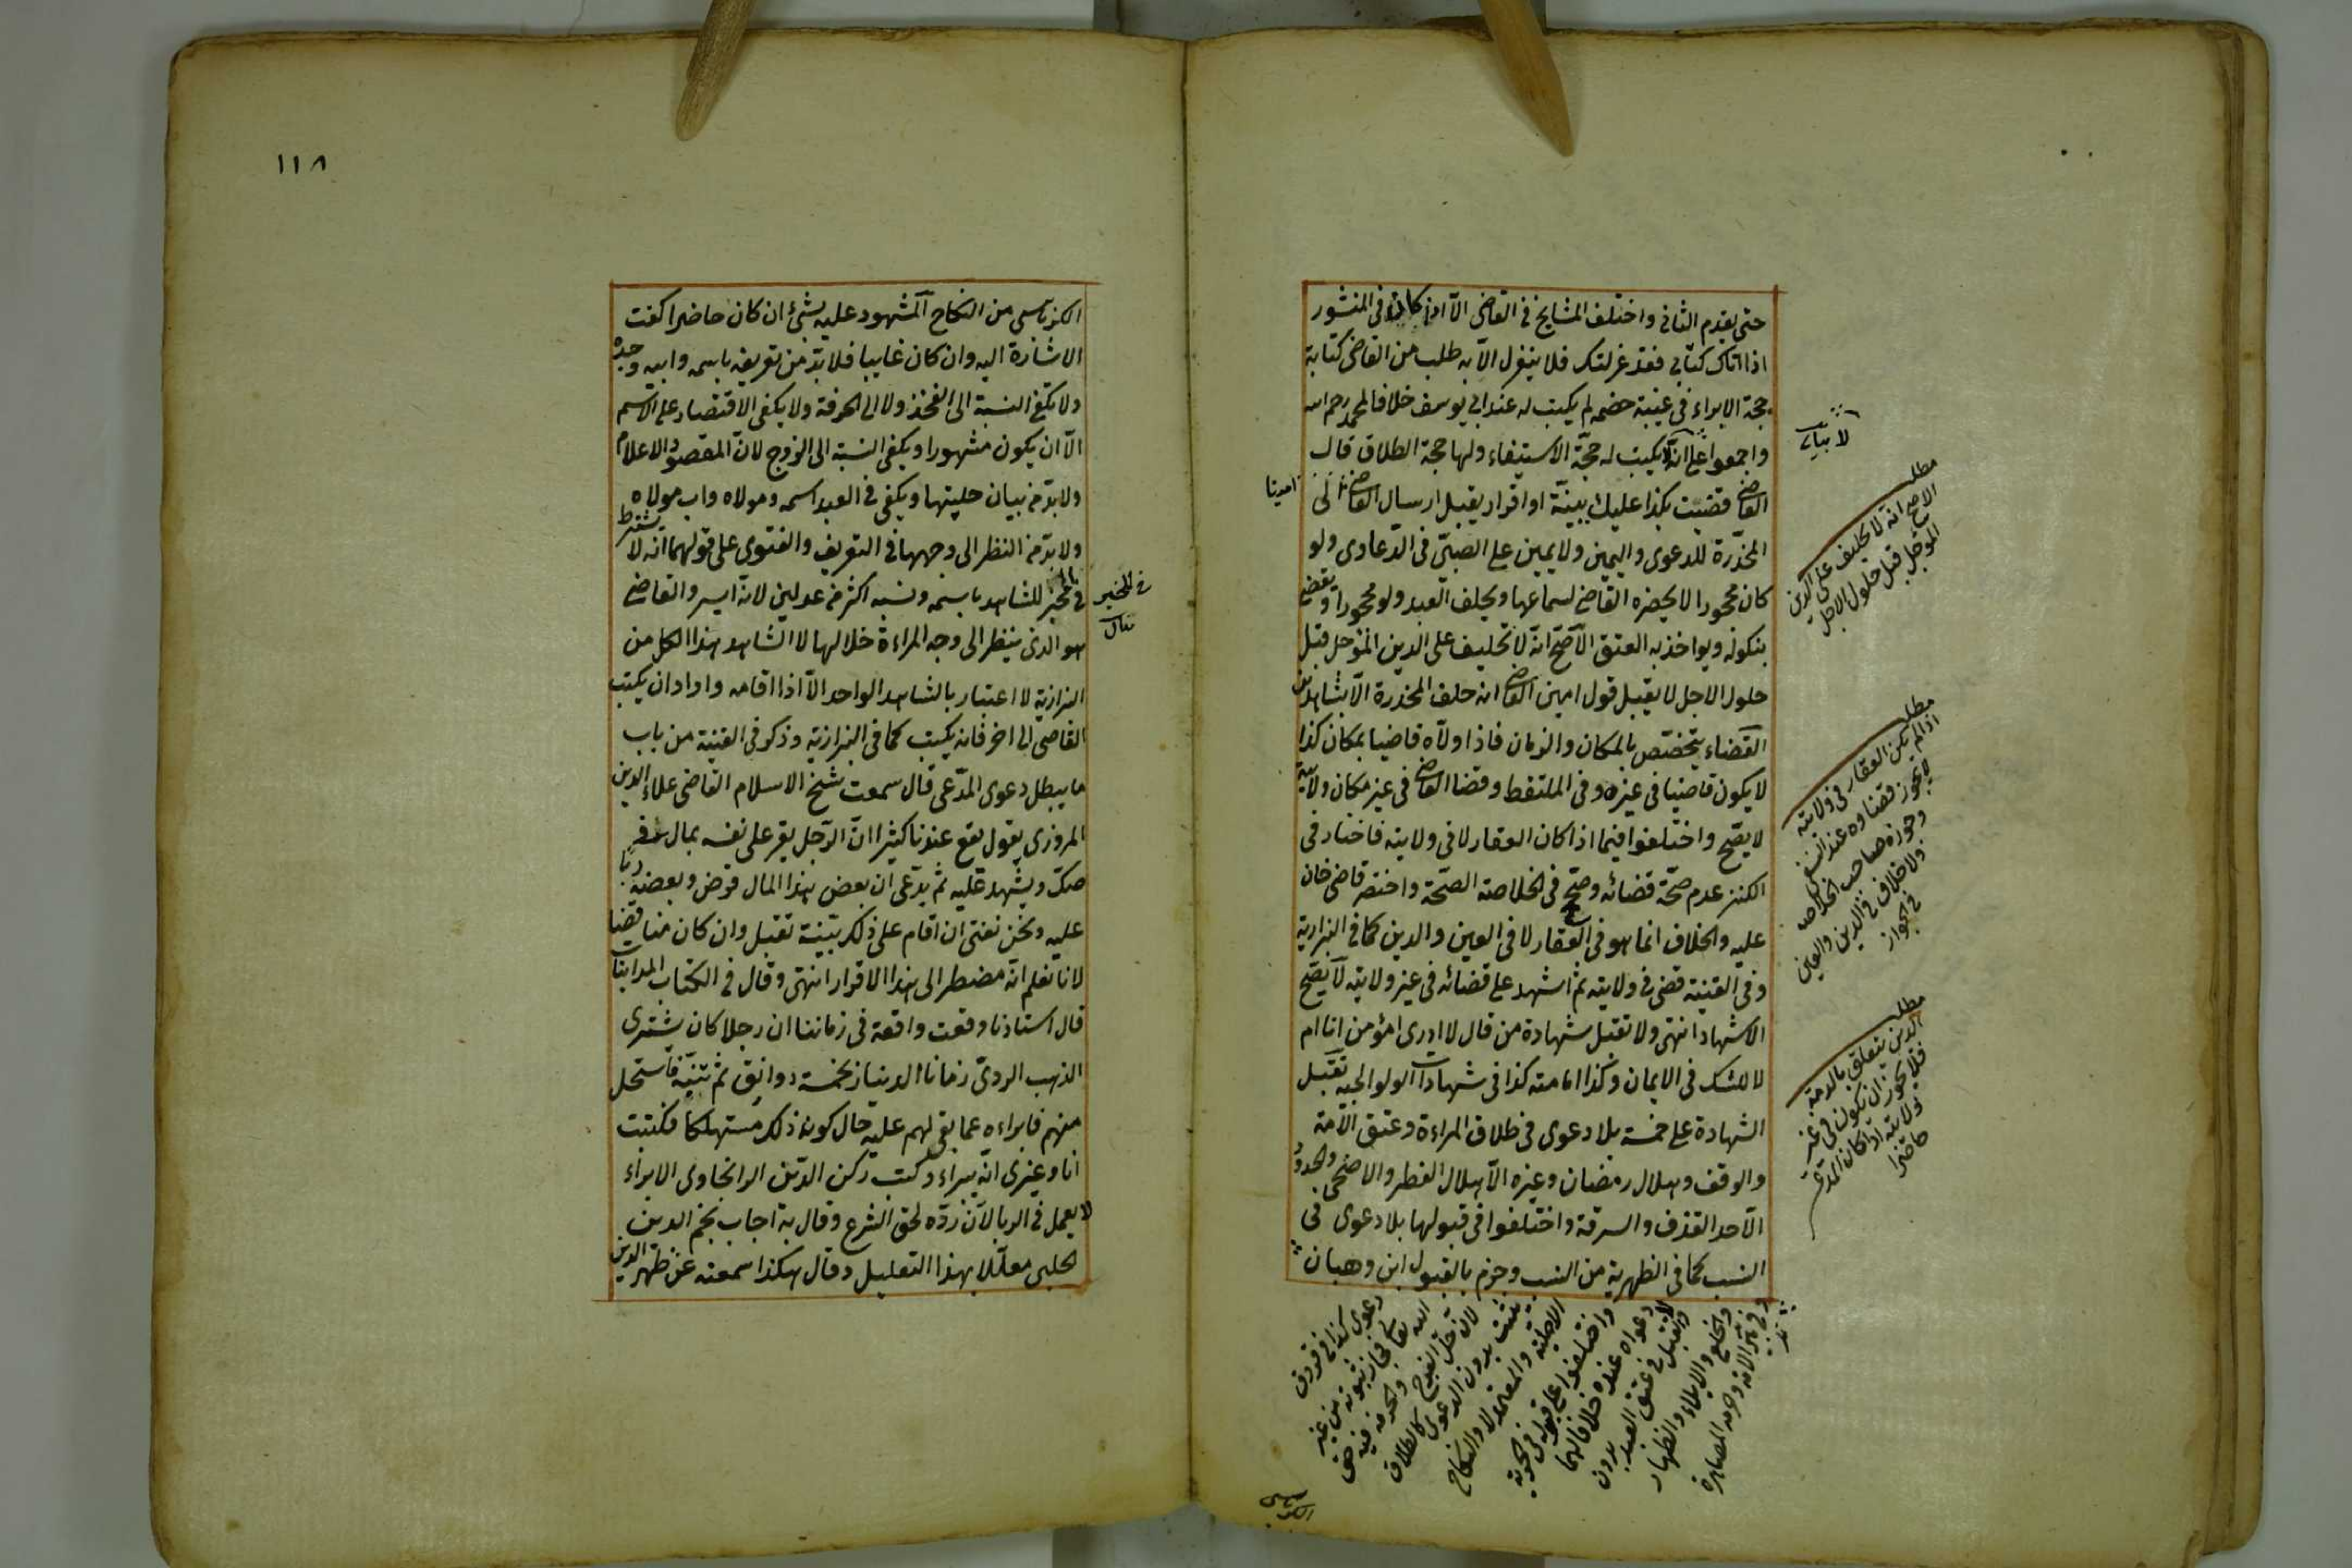 حتى يقدم الثانى واختلف المشايخ فى القاضى الا اذا كان فى المنشور
اذا اتاك كتابى فقد عزلتك فلا ينعزل الا به طلب من القاضى كتابة
حجة الابراء فى غيبة خصمه لم يكتب له عند ابى يوسف خلافا لمحمد رحم الله
واجمعوا على انه يكتب له حجة الاستيفاء ولها حجة الطلاق قال
القاضى قضيت بكذا عليك ببينة او اقرار يقبل ارسال القاضى الى
المخدرة للدعوى واليمين ولا يمين على الصبى فى الدعاوى ولو
كان محجورا لا يحضره القاضى لسماعها ويحلف العبد ولو محجورا ويقضى
بنكوله ويواخذ به العتق الاصح انه لا تحليف على الدين المؤجل قبل
حلول الاجل لا يقبل قول امين القاضى انه حلف المخدرة الا بشاهدين
القضاء يتخصص بالمكان والزمان فاذا ولاه قاضيا بمكان كذا
لا يكون قاضيا فى غيره وفى الملتقط وقضا القاضى فى غير مكان ولايته
لا يصح واختلفوا فيما اذا كان العقار لا فى ولايته فاختار فى
الكنز عدم صحة قضائه وصحح فى الخلاصة الصحة واختصر قاضى خان
عليه والخلاف انما هو فى العقار لا فى العين والدين كما فى البزازية
وفى القنية قضى فى ولايته ثم اشهد على قضائه فى غير ولايته لا يصح
الاشهاد انتهى ولا تقبل شهادة من قال لا ادرى امؤمن انا ام
لا للشك فى الايمان وكذا امامته كذا فى شهادات الولوالجيه تقبل
الشهادة على خمسة بلا دعوى فى طلاق المراءة وعتق الامة
والوقف وهلال رمضان وغيره الا هلال الفطر والاضحى والحدود
الا حد القذف والسرقة واختلفوا فى قبولها بلا دعوى فى
النسب كما فى الظهرية من النسب وجزم بالقبول ابن وهبان
مطلب
الاصح انه لا تحليف على الدين
المؤجل قبل حلول الاجل
مطلب
اذا لم يكن العقار فى ولايته
لا يجوز قضاوه عند النسفى
وجوزه صاحب الخلاصه
ولا خلاف فى الدين والعين
فى الجواز
مطلب
الدين يتعلق بالذمة
فلا يجوز ان يكون فى غير
ولايته اذا كان المدعى
حاضرا
والخلع والايلاء والظهار
ولا تقبل فى عتق العبد بدون
دعواه عنده خلافا لهما
الاصلية والمعتمد لا والنكاح
يثبت بدون الدعوى كالطلاق
لان حل الفرج والحرمة فيه حق
الله تعالى فجاز ثبوته من غير
دعوى كذا فى فروق
الكرابيسى
١١٨
الكرابيسى من النكاح المشهود عليه بشئ ان كان حاضرا كفت
الاشارة اليه وان كان غايبا فلا بد من تعريفه باسمه وابيه وجده
ولا تكفى النسبة الى الفخذ ولا الى الحرفة ولا يكفى الاقتصار على الاسم
الا ان يكون مشهورا ويكفى النسبة الى الزوج لان المقصود الاعلام
ولا بد من بيان حليتها ويكفى فى العبد اسمه ومولاه واب مولاه
ولا بد من النظر الى وجهها فى التعريف والفتوى على قولهما انه لا يشترط
فى المخبر للشاهد باسمه ونسبه اكثر من عدلين لانه ايسر والقاضى
هو الذى ينظر الى وجه المراءة خلالها لا الشاهد هذا الكل من
البزازية لا اعتبار بالشاهد الواحد الا اذا اقامه واراد ان يكتب
القاضى الى اخر فانه يكتب كما فى البزازية وذكر فى القنية من باب
ما يبطل دعوى المدعى قال سمعت شيخ الاسلام القاضى علاء الدين
المروزى يقول يقع عندنا كثيرا ان الرجل يقر على نفسه بمال فى
صك ويشهد عليه ثم يدعى ان بعض هذا المال قرض وبعضه ربا
عليه ونحن نفتى ان اقام على ذلك بينة تقبل وان كان مناقضا
لانا نعلم انه مضطر الى هذا الاقرار انتهى وقال فى الكتاب المداينات
قال استاذنا وقعت واقعة فى زماننا ان رجلا كان يشترى
الذهب الردى زمانا الدينار بخمسة دوانق ثم تنبه فاستحل
منهم فابراءه عما بقى لهم عليه حال كون ذلك مستهلكا فكتبت
انا وغيرى انه يبراء وكتب ركن الدين الوانجاوى الابراء
لا يعمل فى الربا لان رده لحق الشرع وقال به اجاب نجم الدين
الحلبى معللا بهذا التعليل وقال هكذا سمعته عن ظهر الدين
فى المخبر